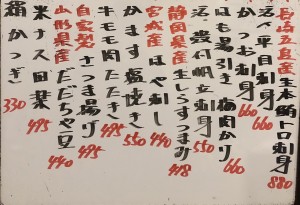 長崎五島産生本鮪トロ刺身 880
活〆平目刺身 660
かつお刺身 660
はも湯引き 梅肉かけ 660
活〆帆立刺身 550
静岡県産生しらすつまみ 418
宮城産ほや刺し 440
かます塩焼き 550
牛モモ肉たたき 495
自家製さつま揚げ 495
山形県産だだちゃ豆 440
米ナス田楽 495
絹かつぎ 330